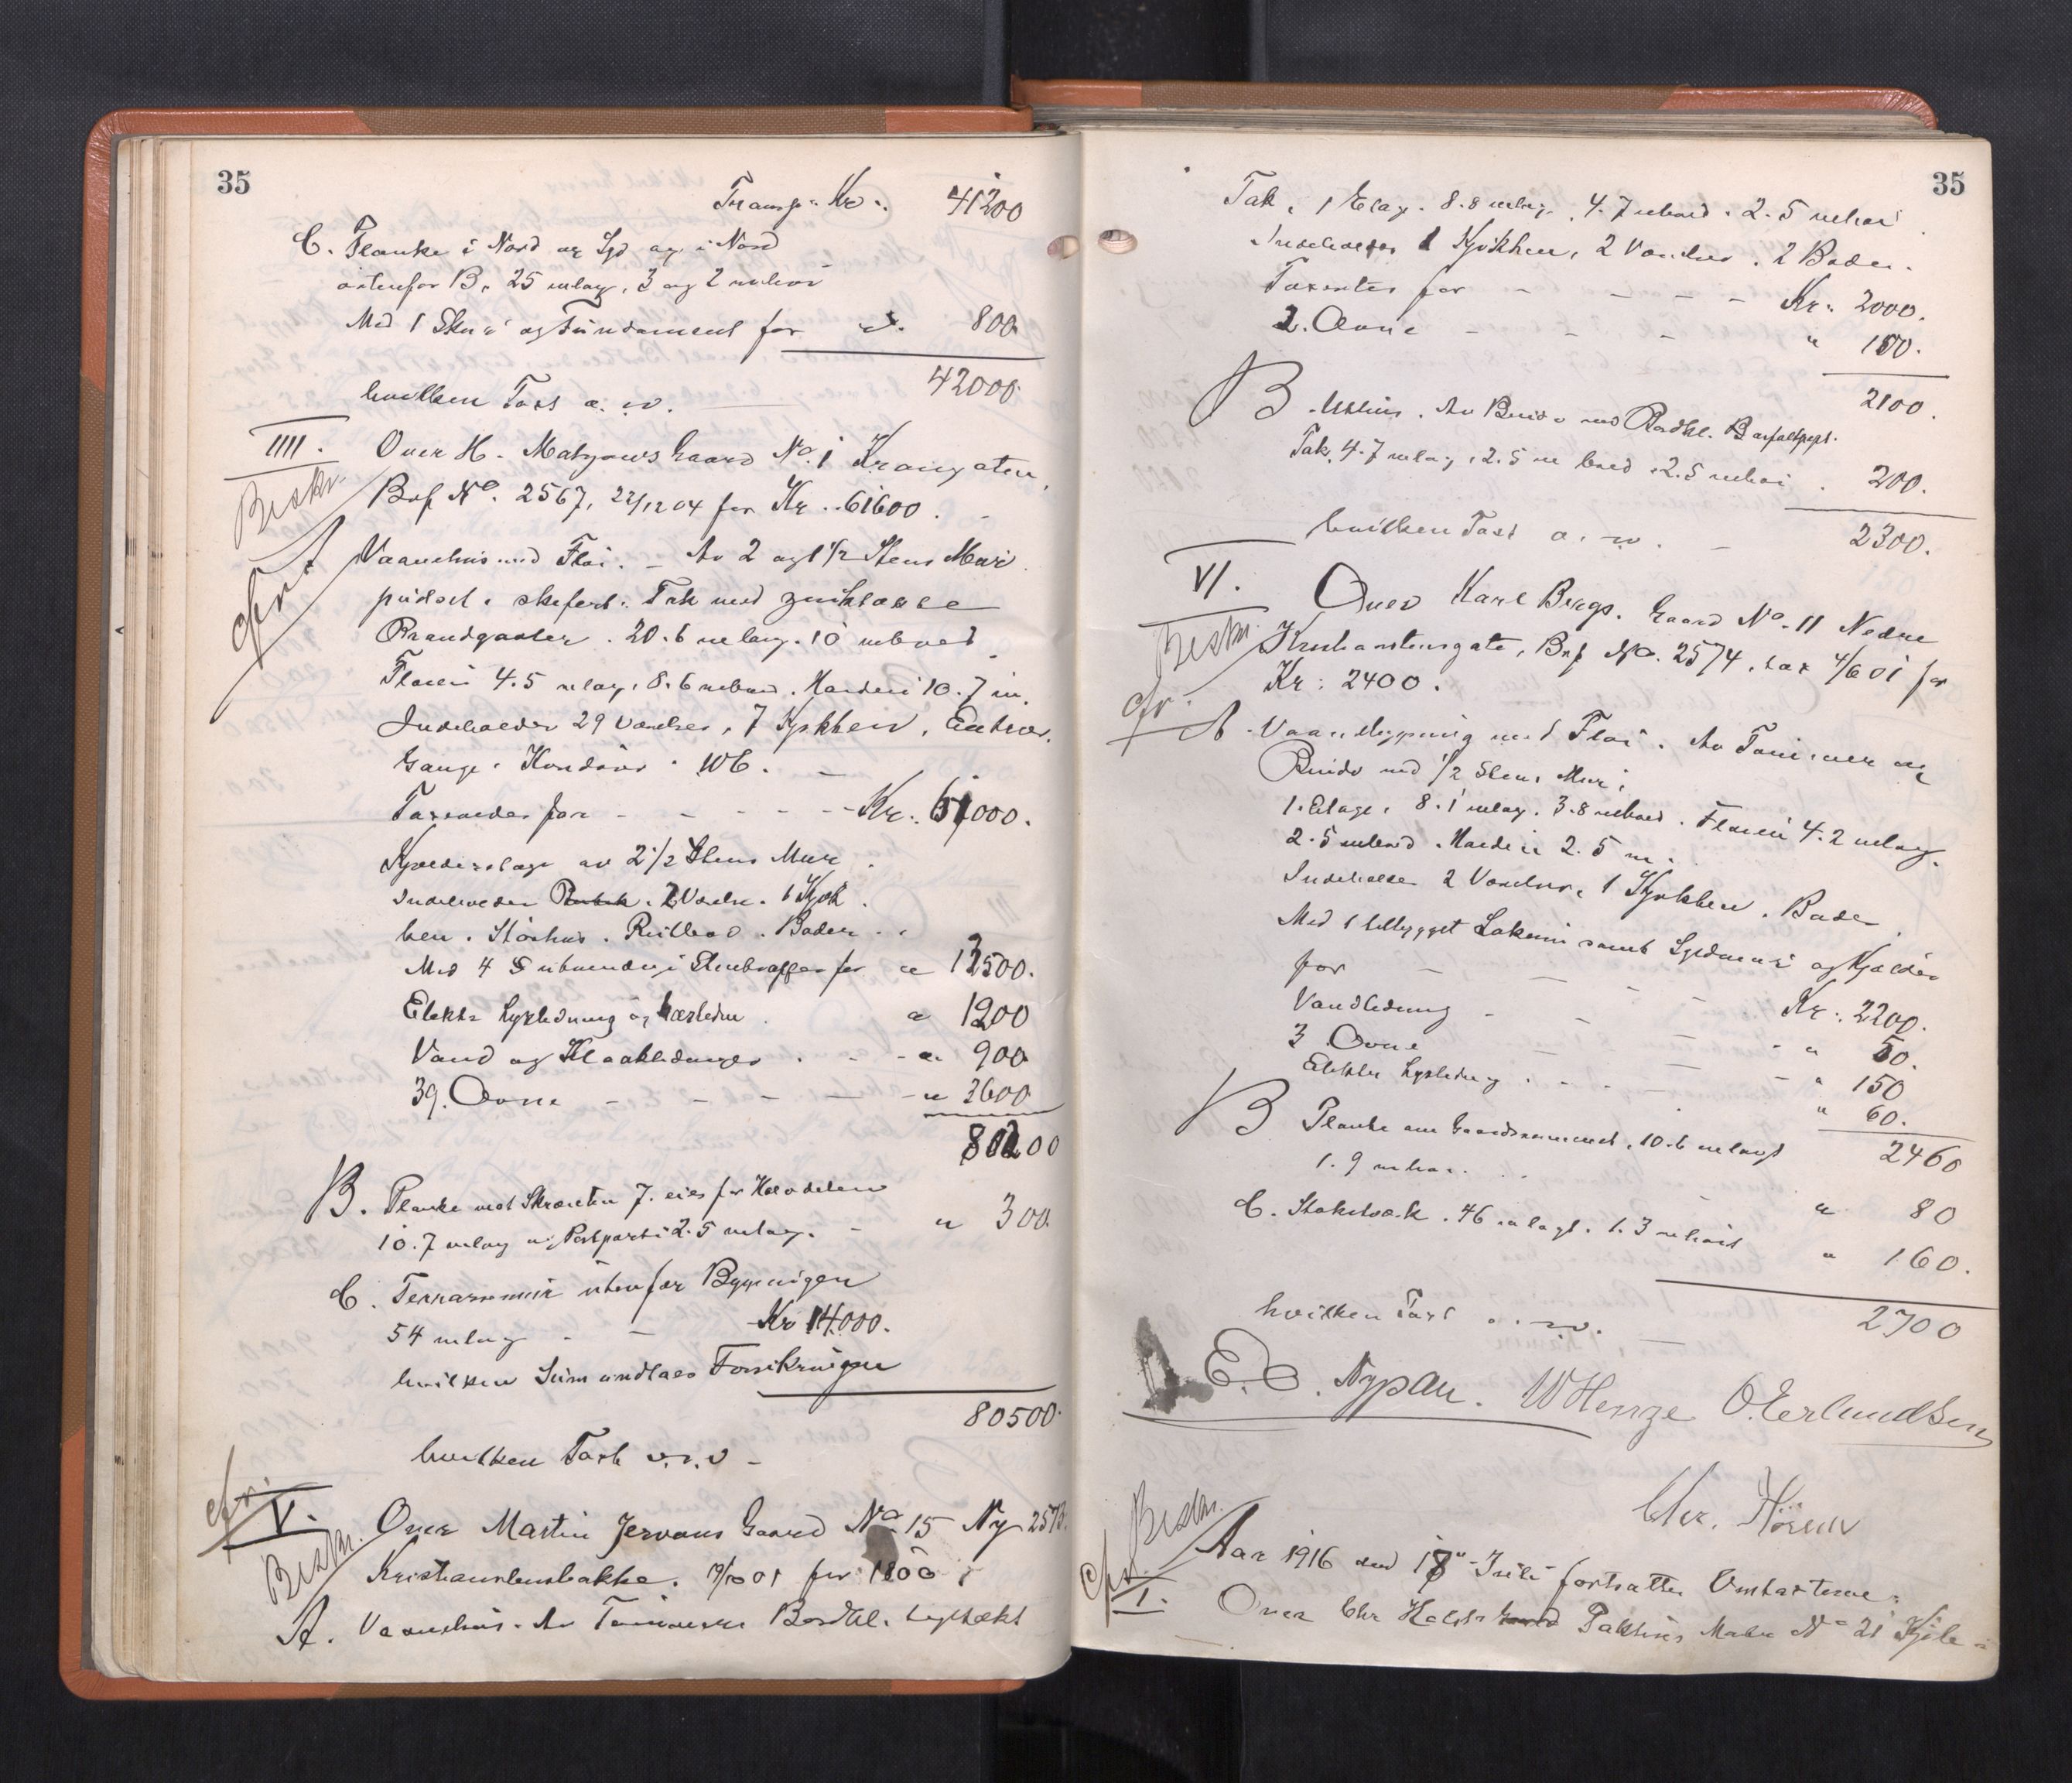 35
Transp. Kr. 41200
C. Planke i Nord og Syd og i Nord
østenfor B, 25 m lang, 3 og 2 m høi
Med 1 Skur og Fundament for 800
42000
hvilken Taxt a. w.
IIII. Over H. Matzows Gaard No. 1 Krangaten,
Beskr.
Brf No. 2567, 22/12 04 for Kr. 61600.
cfr.
A Vaanehus med Fløi. Av 2 og 1 1/2 Stens Mur
pudset. skifert. Tak med zinktække
Brandgavler. 20.6 m lang. 10 m bred
Fløien 4.5 m lang, 8.6 m bred. Høiden 10.7 m.
Indeholder 29 Værelser, 7 Kjøkken, Entreer,
Gange. Korridor. WC.
Taxeredes for Kr. 61000.
Kjælderetage av 2 1/2 Stens Mur
Indeholder 2 Værelse. 1 Kjøk
ken. Rullebod. Boder.
Med 4 utvendige Stentrapper for " 13500.
Elektr. Lysledning og
" 1200
Vand og Kloakledninger " 900
39. Ovne " 3600
80200
B. Planke mod Skrænten 7. eies for Halvdelen
10.7 m lang og Portparti 2.5 m lang. " 300.
C. Terrassemur utenfor Bygningen
54 m lang Kr 14.000.
hvilken Sum undtaes Forsikringen
80500.
hvilken Taxt a. w.
cfr.
V. Over Martin Jervans Gaard No. 15 Ny 2573.
Beskr.
Kristianstensbakke. for 1800
A. Vaanehus. Av Tømmer Bordkl. teglsækt
35
Tak, 1 Etag. 8.8 m lang, 4.7 m bred. 2.5 m høi
Indeholder 1 Kjøkken, 2 Værelser. 2 Boder.
Taxertes for Kr. 2000.
2. Ovne " 100.
2100.
B. Uthus. Av Bindv. med Bordkl. B asfaltpapt.
Tak, 4.7 m lang, 2.5 m bred, 2.5 m høi. 200.
2300.
hvilken Taxt a. w.
VI. Over Karl Bergs. Gaard No. 11 Nedre
Beskr.
Kristianstensgate, Brf No. 2574, tax 4/6 01 for
Kr: 2400.
cfr.
A. Vaanebygning med Fløi. Av Tømmer og
Bindv. med 1/2 Stens Mur;
1. Etage, 8.1 m lang. 3.8 m bred. Fløien 4.2 m lang.
2.5 m bred. Høiden 2.5 m.
Indeholder 2 Værelser, 1 Kjøkken. Boder
Med 1 tilbygget Lokum samt Syldmur og Kjælder
for Kr. 2200.
Vandledning " 50.
3 Ovne " 150
Elektr. Lysledning " 60.
2460
B Planke om Gaardsrummet, 10.6 m langt
1.9 m høi. " 80
C. Stakitværk. 46 m langt. 1.3 m høit " 160.
2700
hvilken Taxt a. w.
E. C. Nypan. W Henze O. Erlandsen
Chr. Hörem
Beskr.
Aar 1916 den 18" Juli fortsattes Omtaxterne:
cfr.
I. Over Chr Holsts Pakhus Matr. No 21 Kjøb-